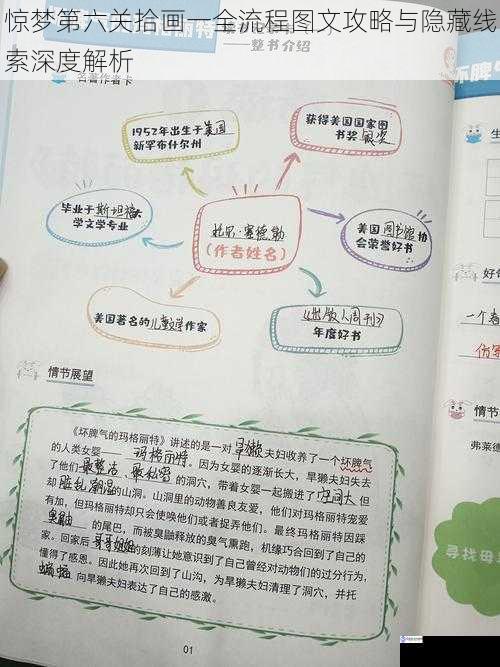 惊梦第六关拾画一全流程图文攻略与隐藏线
索深度解析
——整书介绍
名著作者卡
1952年出生于美国
新罕布什尔州
获得美国国家图
书奖 银奖
毕业于斯坦福大
学文学专业
杜尔·塞德勒
(作者姓名)
美国图书馆协
会荣誉好书
美国著名的儿童文学作家
《出版人周刊》
年度好书
情节展望
《坏脾气的玛格丽特》讲述的是一对旱獭夫妇收养了一个坏脾气
的人类女婴——玛格丽特。因为女婴的逐渐长大，旱獭夫妇失去
了他们最整洁、最私密的洞穴，带着女婴一起搬进了空间大但
却脏乱潮湿的山洞。山洞里的动物善良友爱，他们对玛格丽特宠爱
有加，但玛格丽特却只会使唤他们或者捉弄他们。最终玛格丽特因踩
臭鼬的尾巴，而被臭鼬释放的臭气熏跑，机缘巧合回到了自己的
家。回家后哥哥姐姐的刻薄让她意识到了自己曾经对动物们的过分行为，
懂得了感恩。因此她再次回到了山沟，为旱獭夫妇清理了洞穴，并托
蝙蝠向旱獭夫妇表达了自己的感激。
01
生
好句
一个春
仿写
情节
弗莱德
寻找母